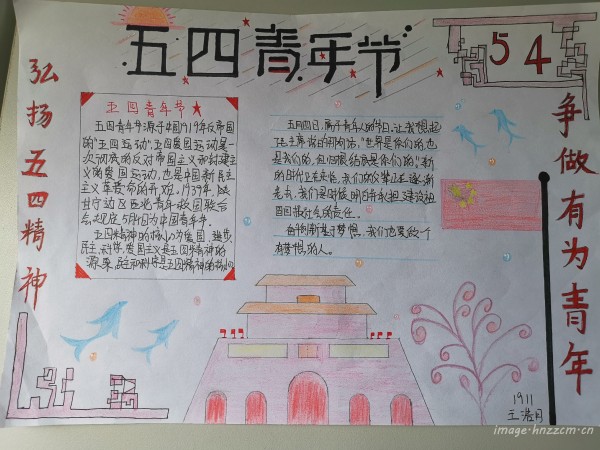 五四青年节
54
弘扬五四精神
争做有为青年
五四青年节
五四青年节源于中国1919年反帝国
的"五四运动",五四爱国运动是一
次彻底的反对帝国主义和封建主
义的爱国运动,也是中国新民主
主义革命的开始。1939年,陕
甘宁边区西北青年救国联合
会,规定5月4日为中国青年节。
五四精神的核心为爱国、进步、
民主、科学,爱国主义是五四精神的
源泉,民主和科学是五四精神的核心
五月四日,属于青年人的节日,让我想起
毛主席说的那句话:"世界是你们的,也
是我们的,但归根结底是你们的。"新
的时代正在来临,我们的父辈正在逐渐
老去,我们是时候明白并承担建设祖
国回报社会的责任。
奋斗创新基于梦想,我们也要做一个
有梦想的人。
1911
王浩月
image.hnzzcm.cn